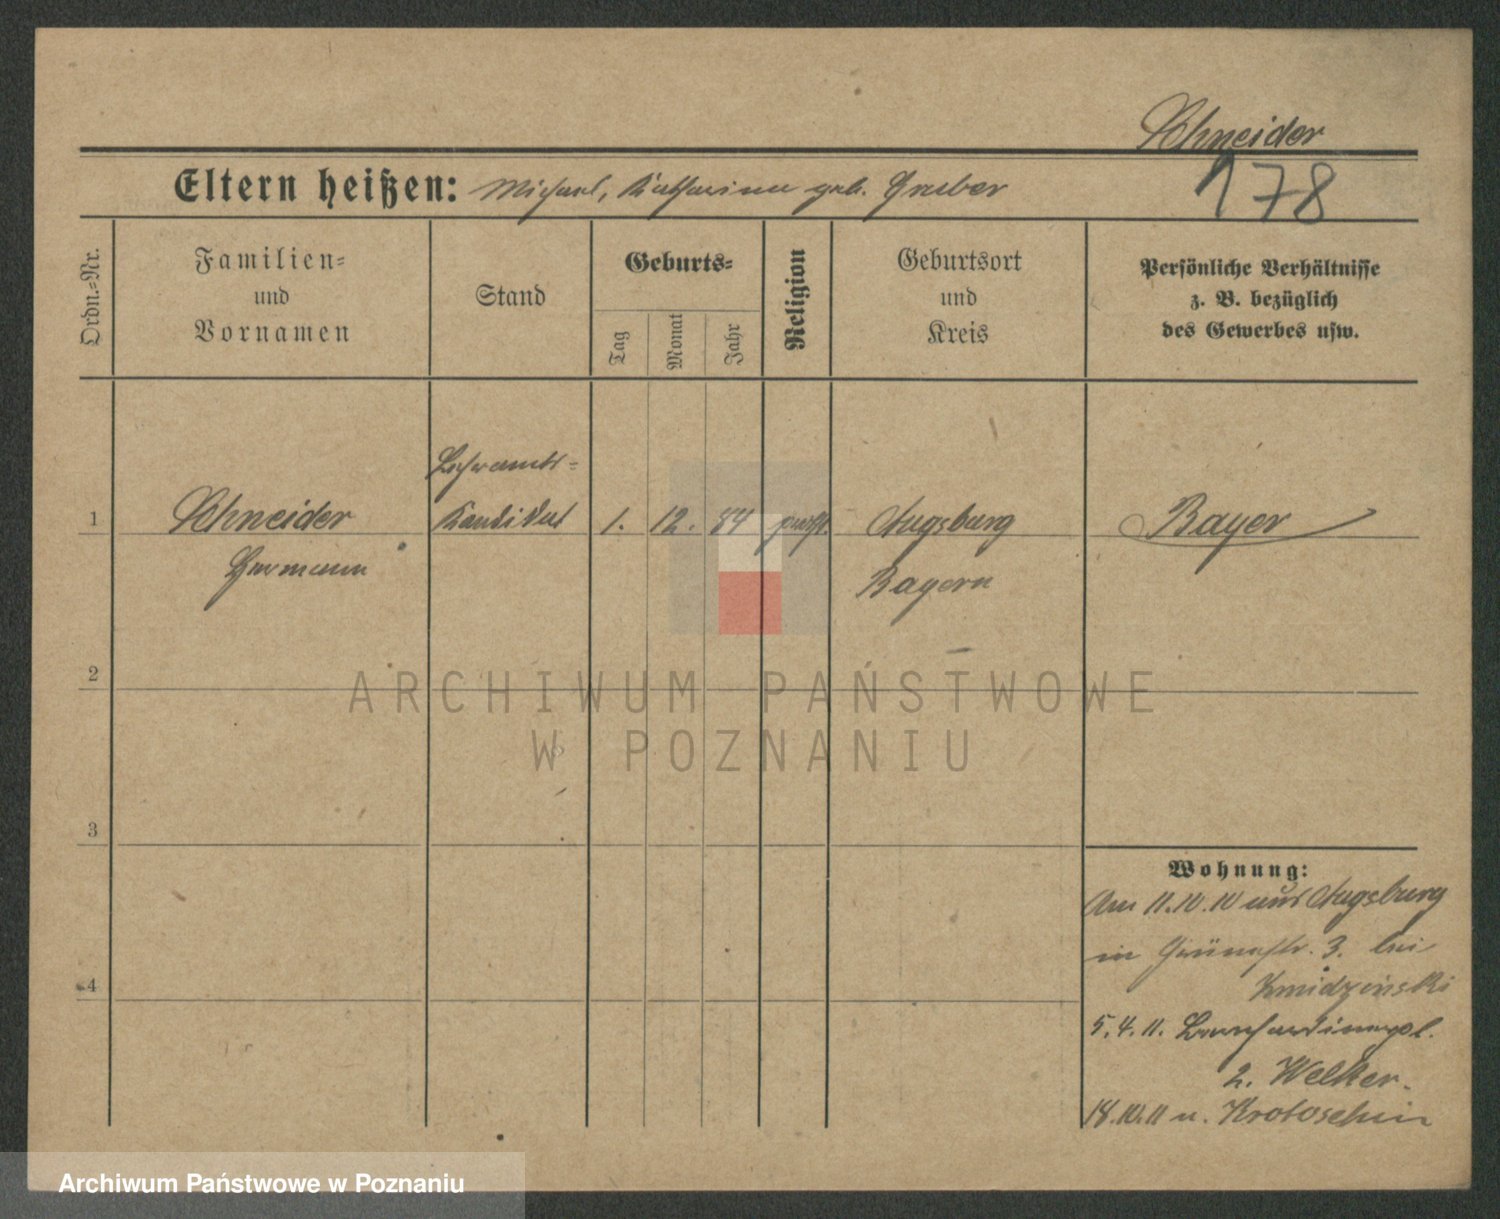 Schneider
178
Eltern heißen: Michael, Katharina geb. Gruber
Ordn.-Nr.
Familien-
und
Vornamen
Stand
Geburts-
Tag
Monat
Jahr
Religion
Geburtsort
und
Kreis
Persönliche Verhältnisse
z. B. bezüglich
des Gewerbes usw.
Lehramts-
1 Schneider Kandidat 1. 12. 84 prot. Augsburg Bayer
Hermann Bayern
2
3
4
Wohnung:
Am 11.10.10 aus Augsburg
in Grünestr. 3. bei
Kmidzinski
5.4.11. Bernhardinerpl.
2. Welker.
18.10.11 n. Krotoschin
ARCHIWUM PAŃSTWOWE
W POZNANIU
Archiwum Państwowe w Poznaniu